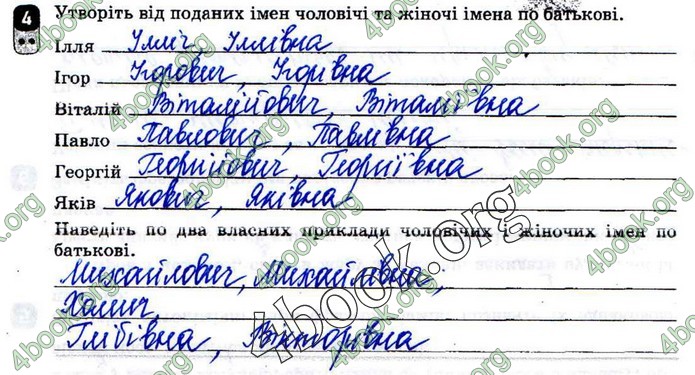 4 Утворіть від поданих імен чоловічі та жіночі імена по батькові.
Ілля Ілліч, Іллівна
Ігор Ігорович, Ігорівна
Віталій Віталійович, Віталіївна
Павло Павлович, Павлівна
Георгій Георгійович, Георгіївна
Яків Якович, Яківна
Наведіть по два власних приклади чоловічих і жіночих імен по
батькові.
Михайлович, Михайлівна,
Хомич,
Глібівна, Вікторівна
4book.org